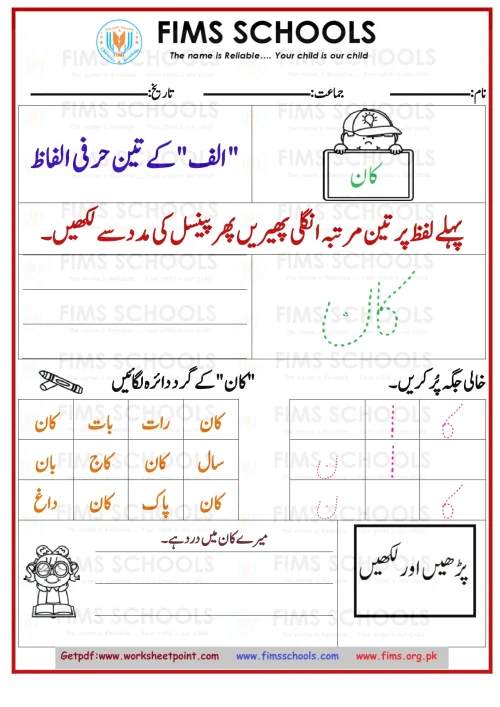 FIMS SCHOOLS
The name is Reliable.... Your child is our child
نام:__________ جماعت:__________ تاریخ:__________
کان
"الف" کے تین حرفی الفاظ
پہلے لفظ پر تین مرتبہ انگلی پھیریں پھر پینسل کی مدد سے لکھیں۔
کان
خالی جگہ پُر کریں۔
"کان" کے گرد دائرہ لگائیں
کا ا
ا ن
کا ن
کان رات بات کان
سال کان کاج بان
کان پاک کان داغ
پڑھیں اور لکھیں
میرے کان میں درد ہے۔
Getpdf:www.worksheetpoint.com www.fimsschools.com www.fims.org.pk